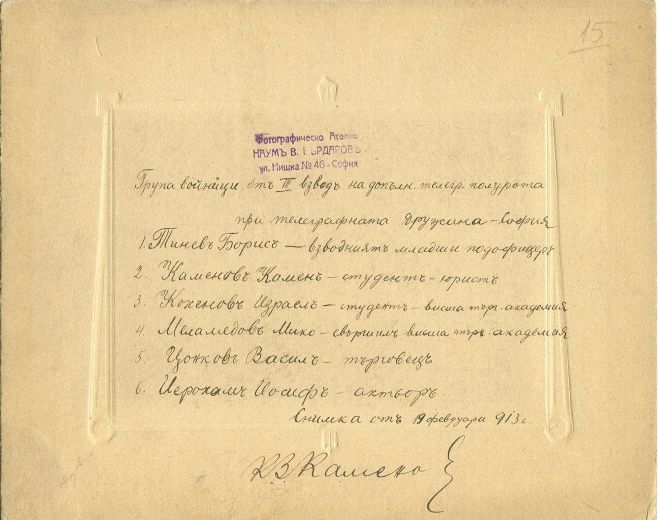 15
Фотографическо Ателие
НАУМЪ В. БЪРДАРОВЪ
ул. Нишка № 46 - София
Група войници отъ III взводъ на допълн. телегр. полурота
при телеграфната дружина - София
1. Тиневъ Борисъ — взводниятъ младши подофицеръ
2. Каменовъ Каменъ - студентъ - юристъ
3. Кохеновъ Израелъ - студентъ - висша търг. академия
4. Меламедовъ Мико - свършилъ висша търг. академия
5. Цонковъ Василъ - търговецъ
6. Иерохамъ Иосифъ - актьоръ
Снимка отъ 19 февруари 913 г.
К. В. Камено